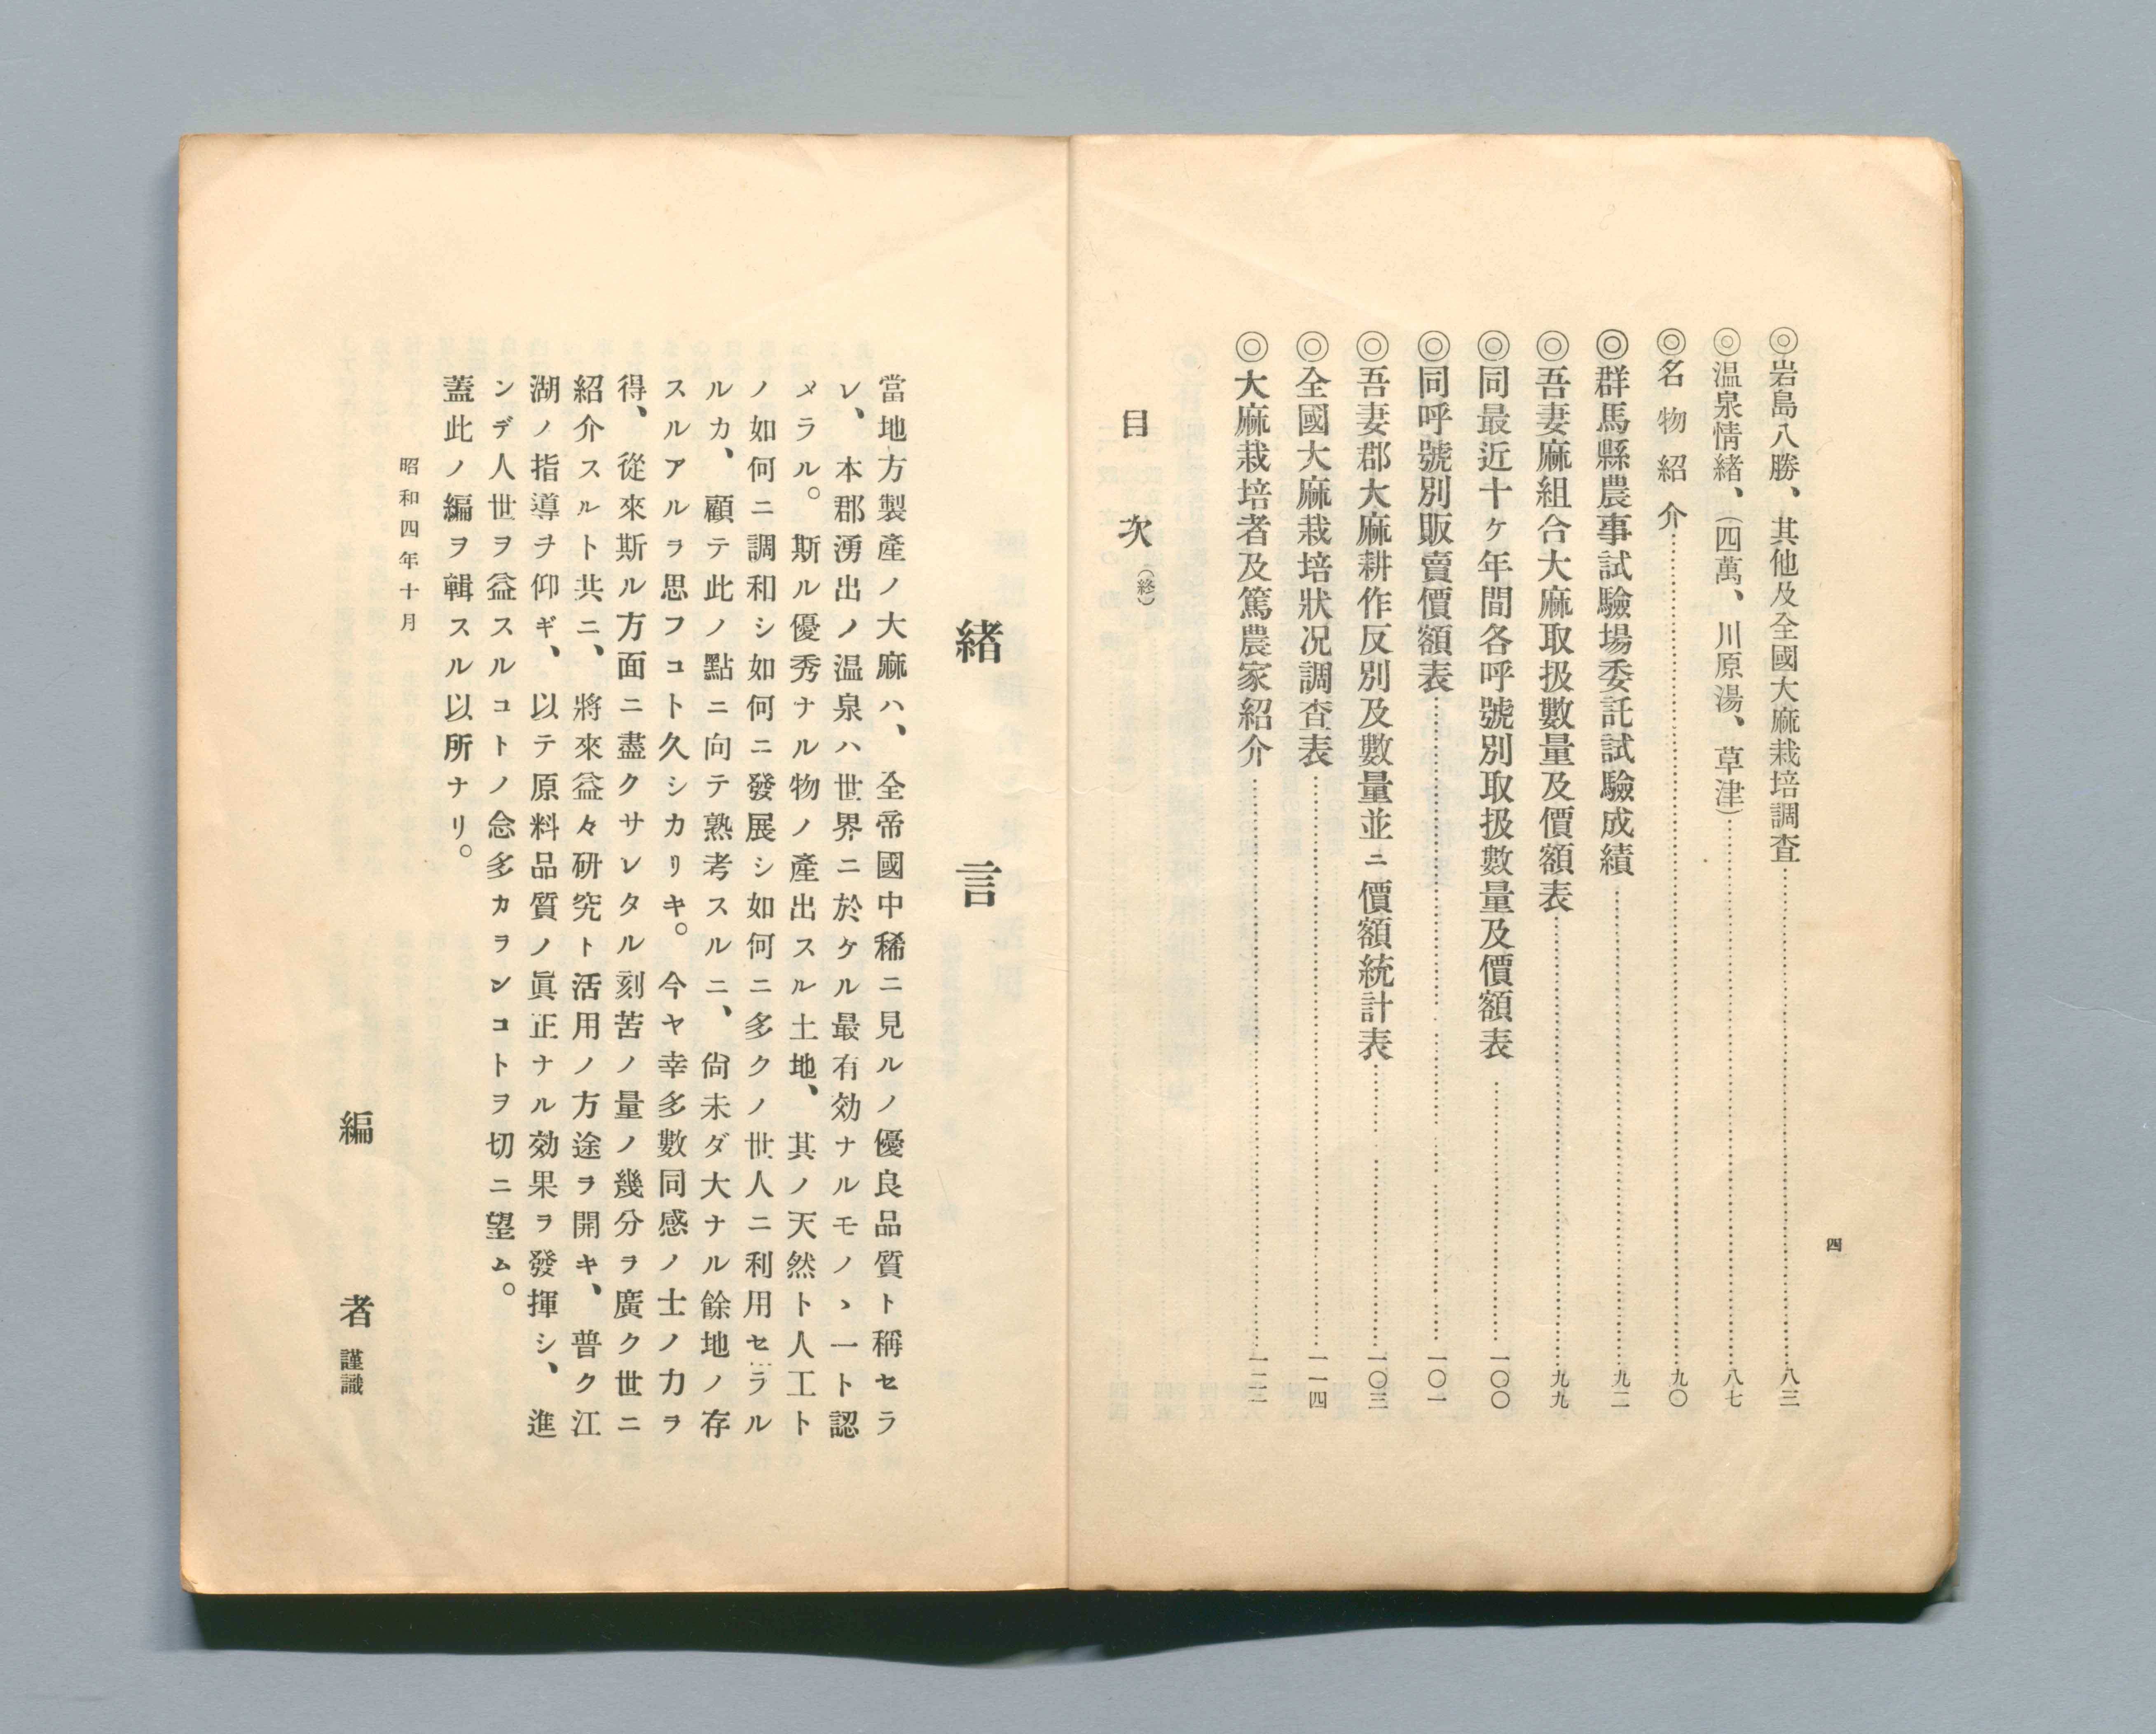 四
◎岩島八勝、其他及全國大麻栽培調査……八三
◎温泉情緒、（四萬、川原湯、草津）……八七
◎名物紹介……九〇
◎群馬縣農事試驗場委託試驗成績……九二
◎吾妻麻組合大麻取扱數量及價額表……九九
◎同最近十ヶ年間各呼號別取扱數量及價額表……一〇〇
◎同呼號別販賣價額表……一〇一
◎吾妻郡大麻耕作反別及數量並ニ價額統計表……一〇三
◎全國大麻栽培狀况調査表……一一四
◎大麻栽培者及篤農家紹介……一二一
目次（終）
緒言
當地方製產ノ大麻ハ、全帝國中稀ニ見ルノ優良品質ト稱セラ
レ、本郡湧出ノ温泉ハ世界ニ於ケル最有効ナルモノヽ一ト認
メラル。斯ル優秀ナル物ノ產出スル土地、其ノ天然ト人工ト
ノ如何ニ調和シ如何ニ發展シ如何ニ多クノ世人ニ利用セラル
ルカ、顧テ此ノ點ニ向テ熟考スルニ、尙未ダ大ナル餘地ノ存
スルアルヲ思フコト久シカリキ。今ヤ幸多數同感ノ士ノ力ヲ
得、從來斯ル方面ニ盡クサレタル刻苦ノ量ノ幾分ヲ廣ク世ニ
紹介スルト共ニ、將來益々研究ト活用ノ方途ヲ開キ、普ク江
湖ノ指導ヲ仰ギ、以テ原料品質ノ眞正ナル効果ヲ發揮シ、進
ンデ人世ヲ益スルコトノ念多カランコトヲ切ニ望ム。
蓋此ノ編ヲ輯スル以所ナリ。
昭和四年十月
編者謹識